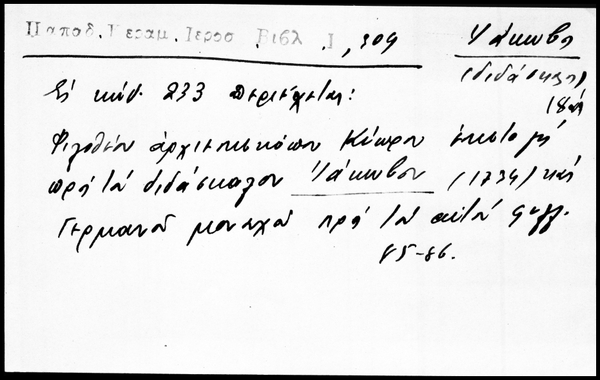 Παπαδ. Κεραμ. Ιεροσ. Βιβλ. Ι, 309
Ἰάκωβος
(διδάσκαλος)
18 αἰ.
Εἰς κώδ. 233 περιέχεται:
Φιλοθέου ἀρχιεπισκόπου Κύπρου ἐπιστολὴ
πρὸς τὸν διδάσκαλον Ἰάκωβον (1734) καὶ
Γερμανοῦ μοναχοῦ πρὸς τὸν αὐτὸν φύλλ.
85-86.